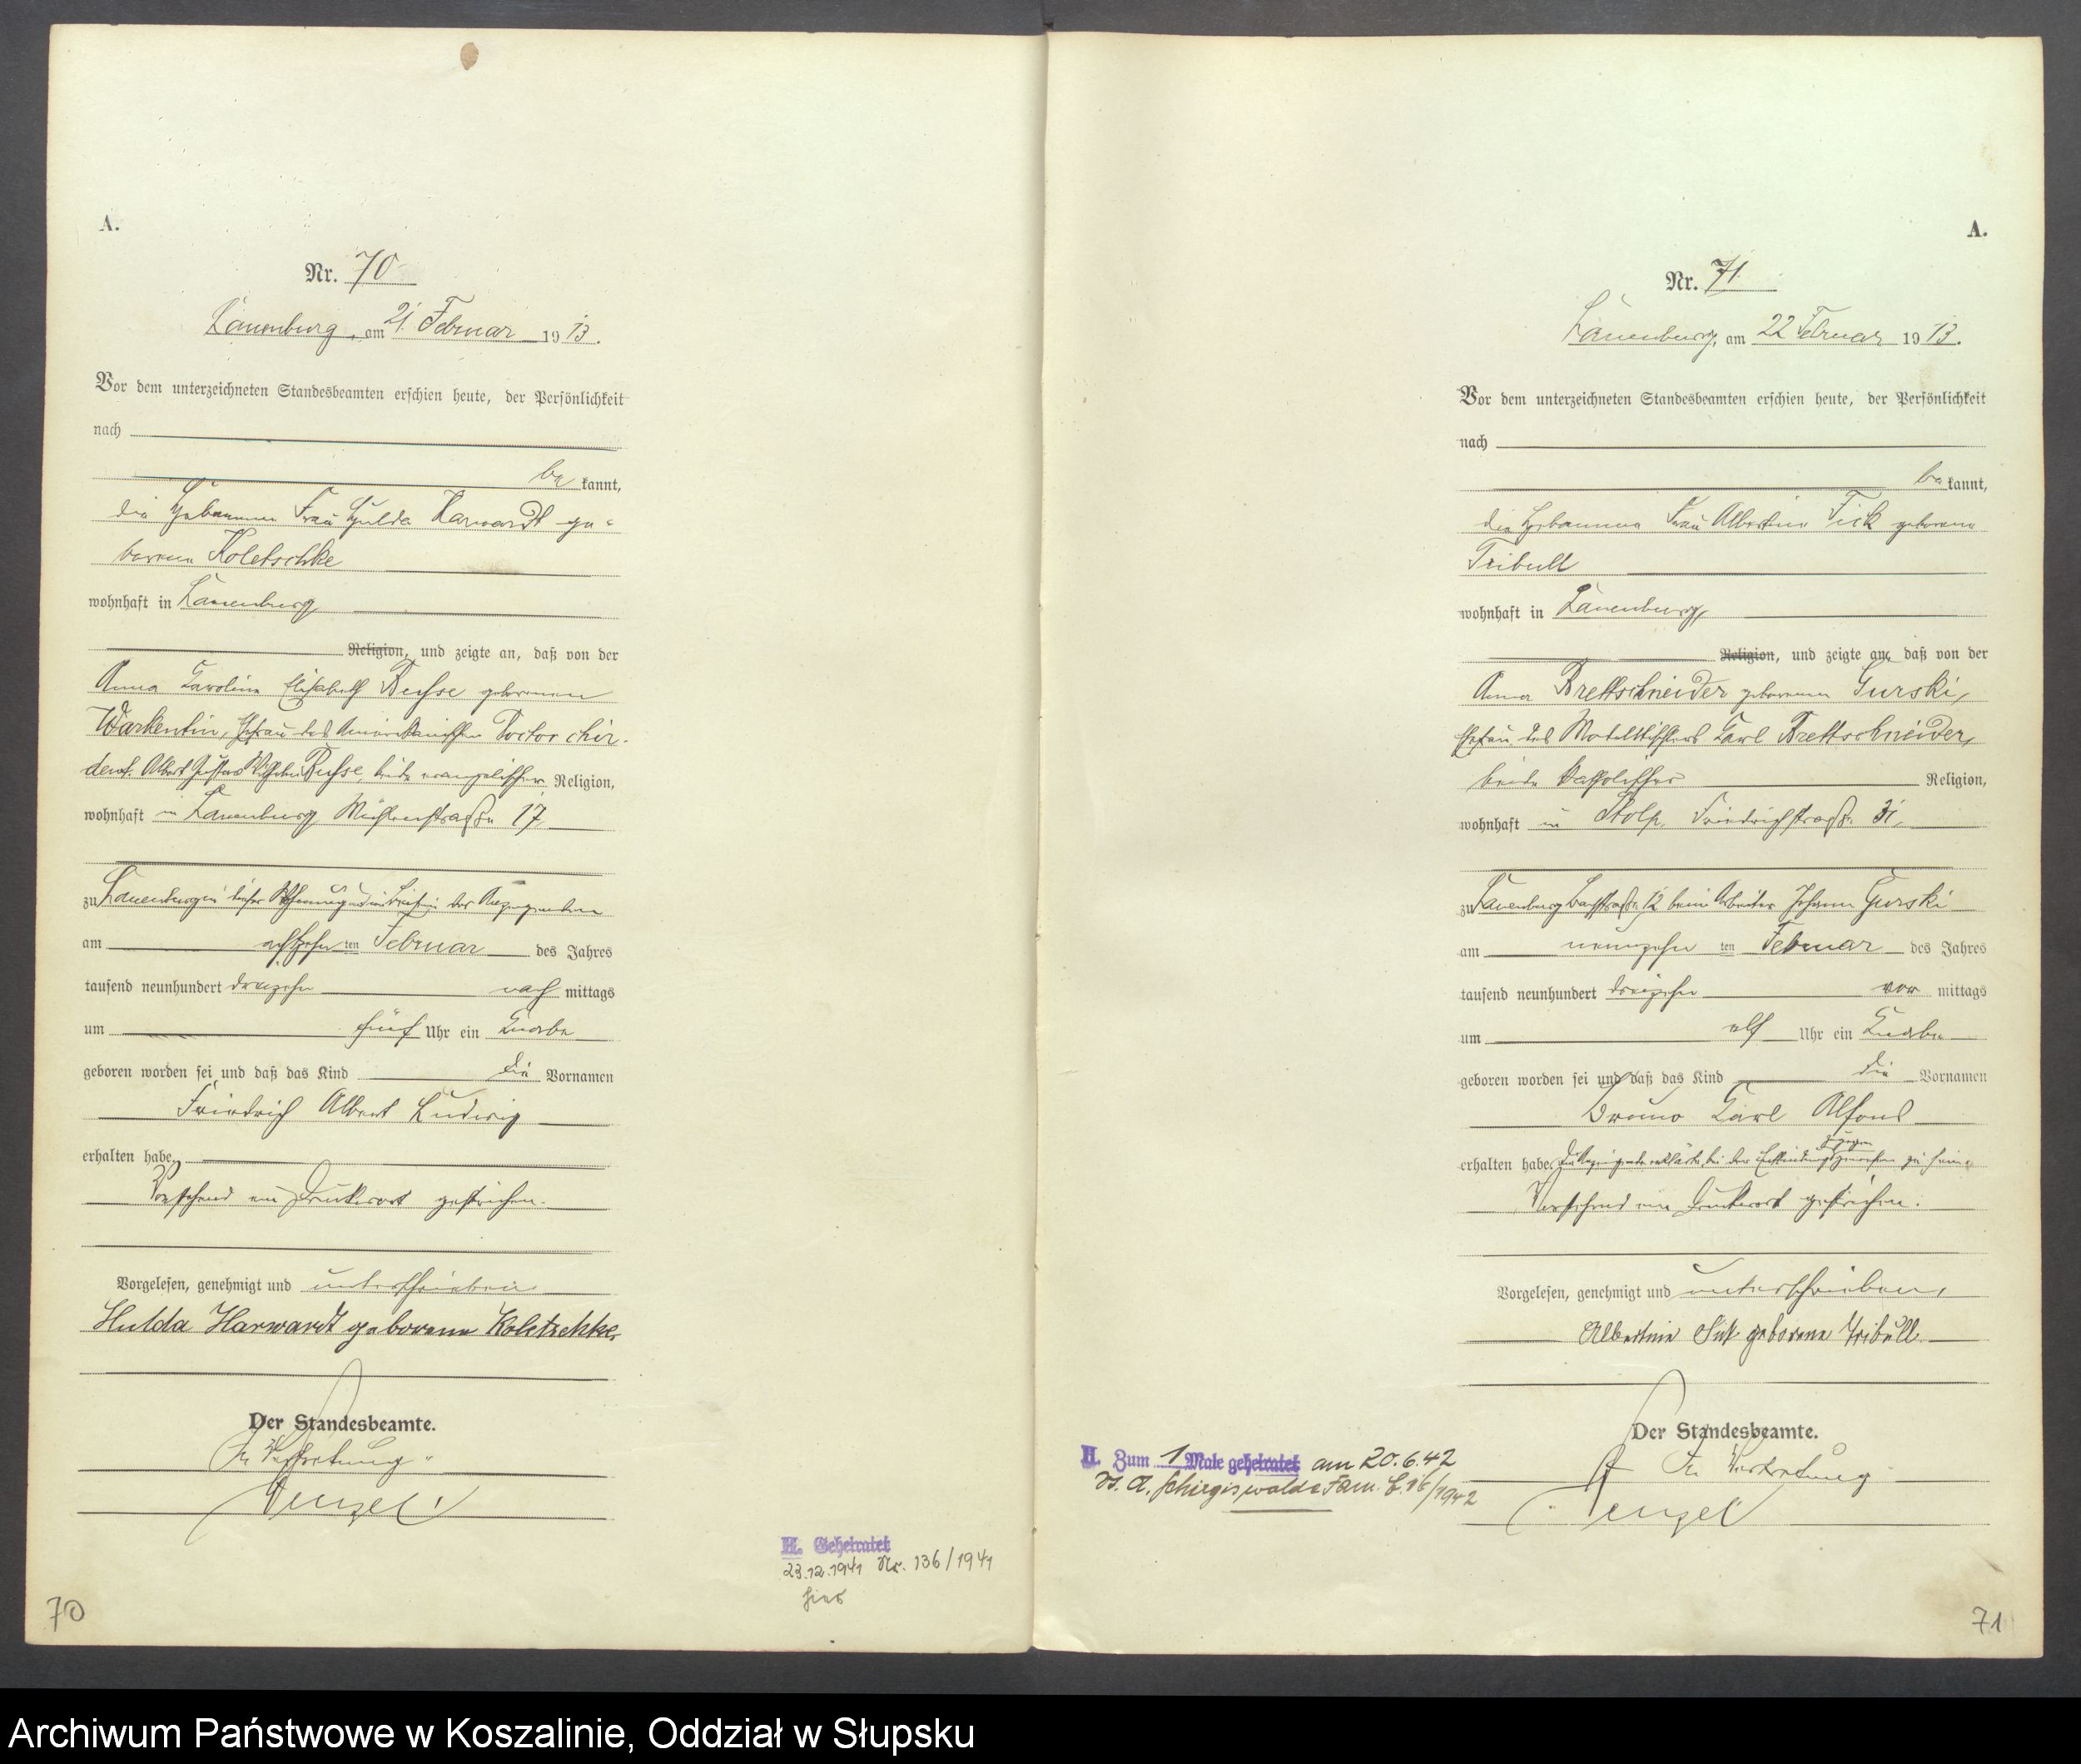 A.
Nr. 70
Lauenburg, am 21. Februar 1913.
Vor dem unterzeichneten Standesbeamten erschien heute, der Persönlichkeit
nach
be kannt,
die Hebamme Frau Hulda Harwardt ge-
borene Koletschke
wohnhaft in Lauenburg
Religion, und zeigte an, daß von der
Anna Karoline Elisabeth Buhse geborenen
Warkentin, Ehefrau des Amerikanischen Doctor chir.
dent. Albert Gustav Wilhelm Buhse, beide evangelischer Religion,
wohnhaft in Lauenburg 17,
zu Lauenburg in dieser Wohnung in Beisein der Anzeigenden
am achtzehn ten Februar des Jahres
tausend neunhundert dreizehn nach mittags
um fünf Uhr ein Knabe
geboren worden sei und daß das Kind die Vornamen
Friedrich Albert Ludwig
erhalten habe.
Vorstehend ein Druckwort gestrichen.
Vorgelesen, genehmigt und unterschrieben
Hulda Harwardt geborene Koletschke.
Der Standesbeamte.
In Vertretung.
Wenzel
H. Geheiratet
23.12.1941 Nr. 136/1941
hier
70
A.
Nr. 71
Lauenburg, am 22 Februar 1913.
Vor dem unterzeichneten Standesbeamten erschien heute, der Persönlichkeit
nach
be kannt,
die Hebamme Frau Albertine Fick geborene
Tribull
wohnhaft in Lauenburg,
Religion, und zeigte an, daß von der
Anna Brettschneider geborenen Gurski,
Ehefrau des Modelltischlers Karl Brettschneider,
beide katholischer Religion,
wohnhaft in Stolp, Friedrichstraße 31,
zu Lauenburg 12 beim Arbeiter Johann Gurski
am neunzehn ten Februar des Jahres
tausend neunhundert dreizehn vor mittags
um elf Uhr ein Knabe
geboren worden sei und daß das Kind die Vornamen
Bruno Karl Alfons
erhalten habe. Die Anzeigende erklärte, bei der Entbindung zugegen gewesen zu sein.
Vorstehend ein Druckwort gestrichen.
Vorgelesen, genehmigt und unterschrieben,
Albertine Fick geborene Tribull.
Der Standesbeamte.
In Vertretung
Wenzel
H. Zum 1 Male geheiratet am 20.6.42
St. A. Schirgiswalde Fam. B. 16/1942
71
Archiwum Państwowe w Koszalinie, Oddział w Słupsku